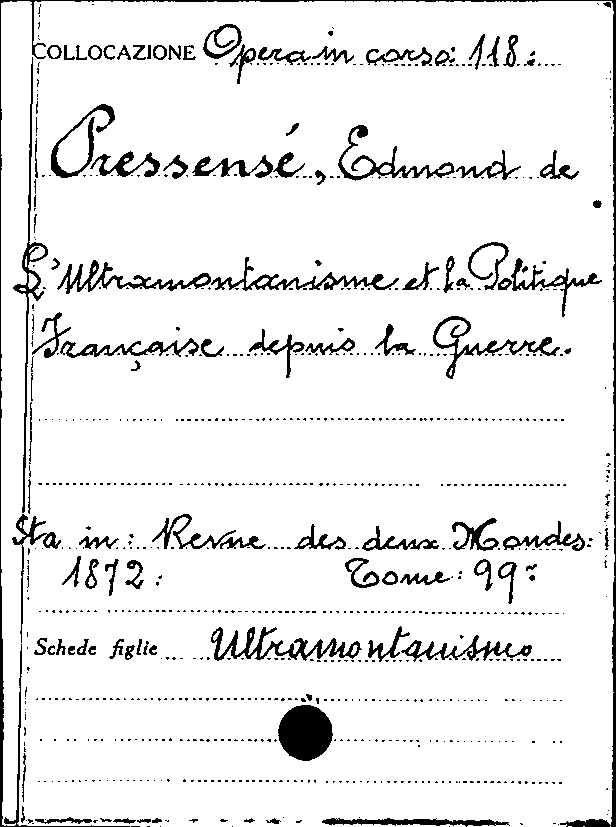 COLLOCAZIONE Opera in corso: 118:
Pressensé, Edmond de
L'Ultramontanisme et la Politique
Française depuis la Guerre.
Sta in: Revue des deux Mondes:
1872: Tome: 99:
Schede figlie Ultramontanismo